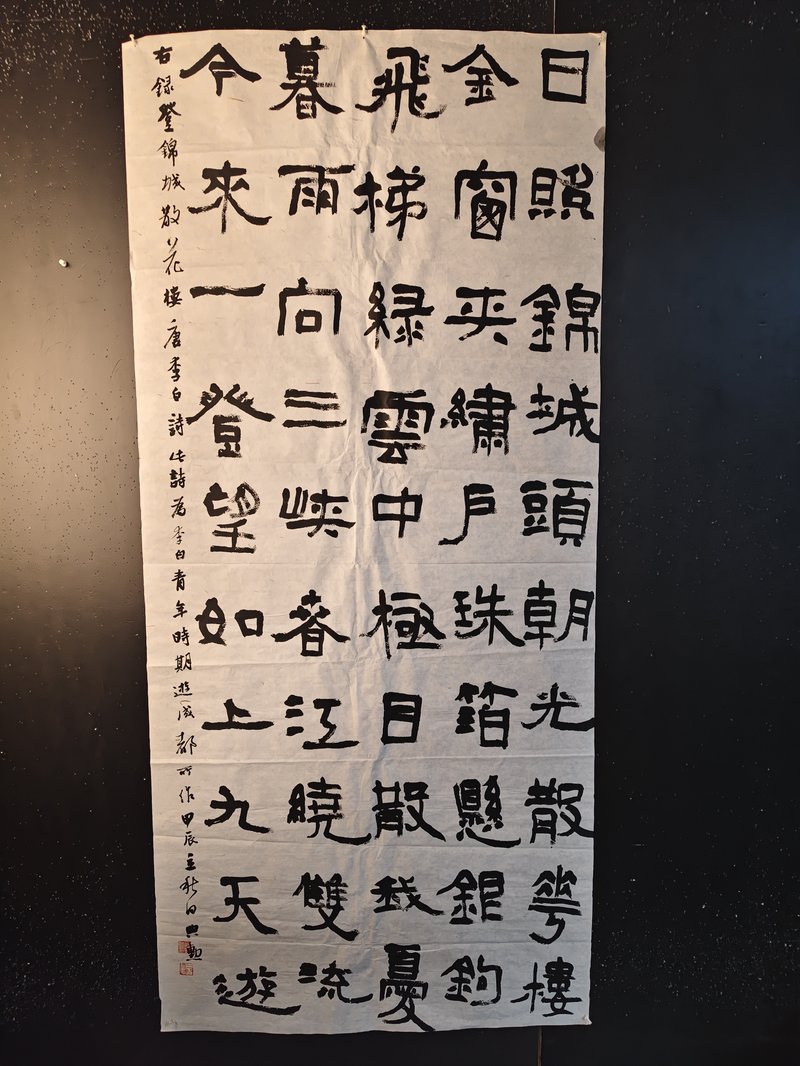 日照錦城頭朝光散華樓
金窗夾繡戶珠箔懸銀鉤
飛梯綠雲中極目散我憂
暮雨向三峽春江繞雙流
今來一登望如上九天遊
右録登錦城散花樓唐李白詩此詩為李白青年時期遊成都所作甲辰立秋日興勳